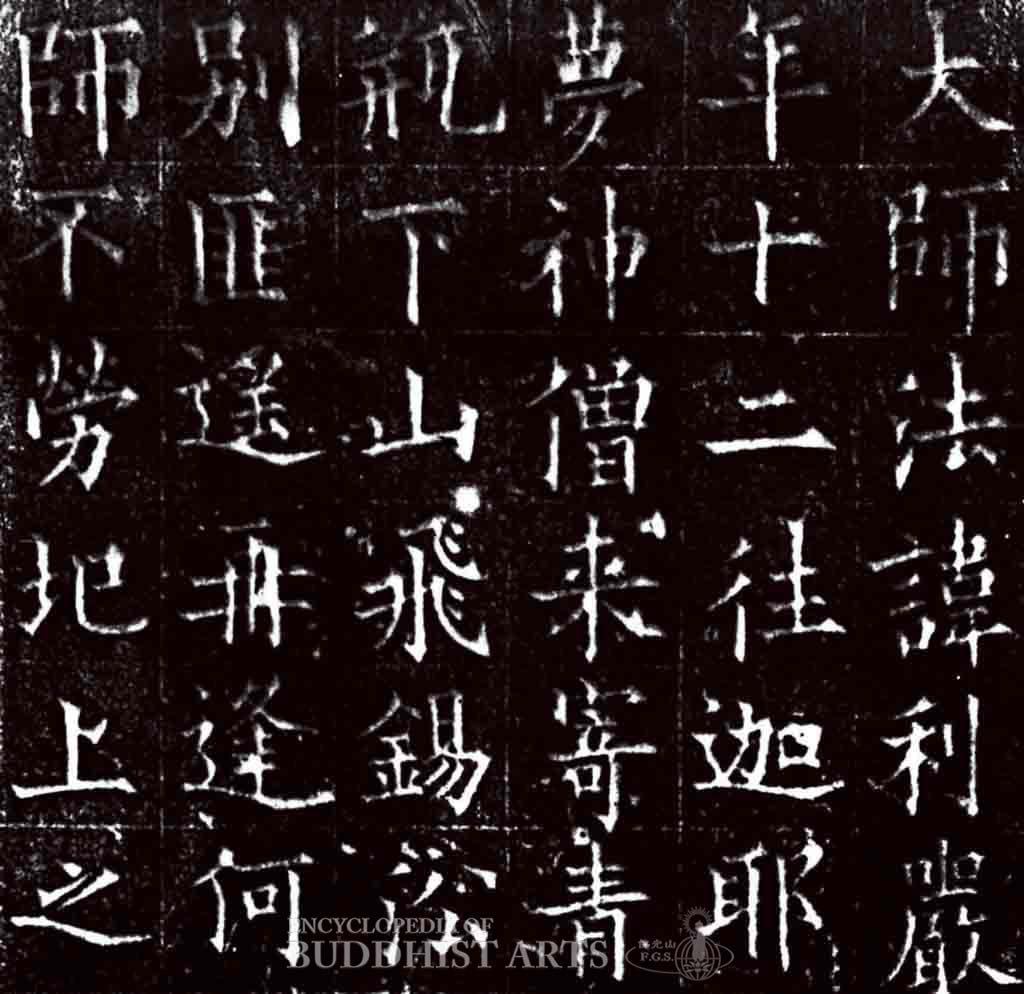 大師法諱利嚴
年十二往迦耶
夢神僧来寄青
瓶下山飛錫沿
別匪遥再逢何
師不勞地上之
ENCYCLOPEDIA OF
BUDDHIST ARTS
佛光山
F.G.S.